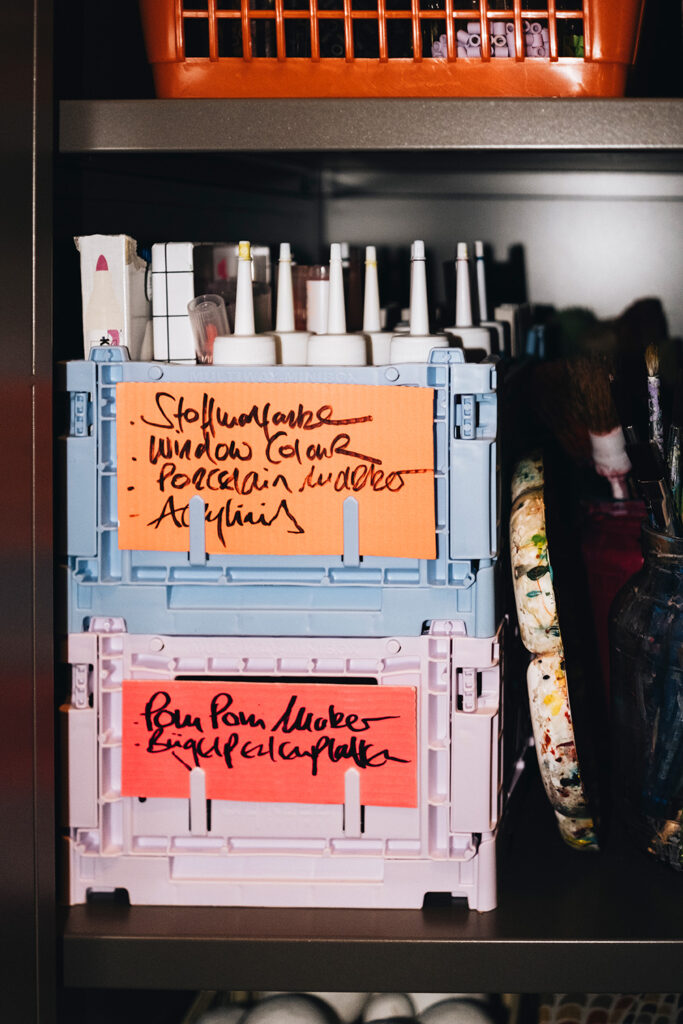 . Stoffmalfarbe
. Window Colour
. Porcelain Marker
- Acryllinis
. Pom Pom Maker
. Bügelperlenplatten